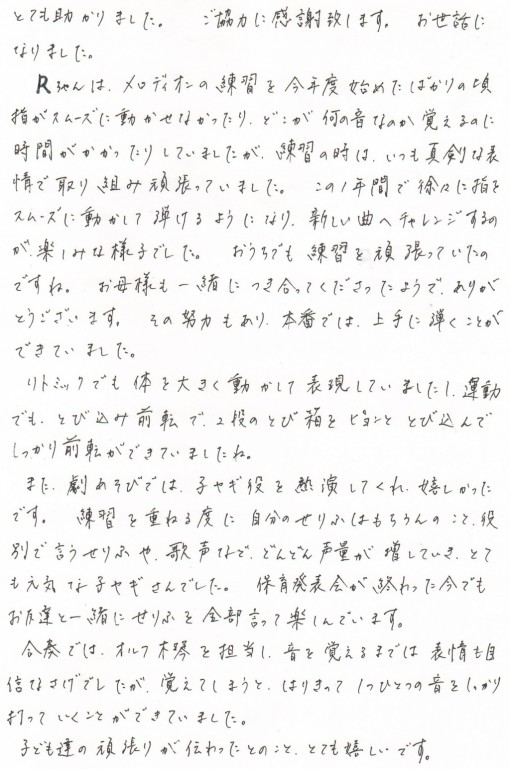 とても助かりました。　ご協力に感謝致します。　お世話に
なりました。
Rちゃんは、メロディオンの練習を今年度始めたばかりの頃
指がスムーズに動かせなかったり、どこが何の音なのか覚えるのに
時間がかかったりしていましたが、練習の時は、いつも真剣な表
情で取り組み頑張っていました。　この1年間で徐々に指を
スムーズに動かして弾けるようになり、新しい曲へチャレンジするの
が、楽しみな様子でした。　おうちでも練習を頑張っていたの
ですね。　お母様も一緒につき合ってくださったようで、ありが
とうございます。　その努力もあり、本番では、上手に弾くことが
できていました。
リトミックでも体を大きく動かして表現していましたし、運動
でも、とび込み前転で、2段のとび箱をピョンととび込んで
しっかり前転ができていましたね。
また、劇あそびでは、子ヤギ役を熱演してくれ、嬉しかった
です。　練習を重ねる度に自分のせりふはもちろんのこと、役
別で言うせりふや、歌声など、どんどん声量が増していき、とて
も元気な子ヤギさんでした。　保育発表会が終わった今でも
お友達と一緒にせりふを全部言って楽しんでいます。
合奏では、オルフ木琴を担当し、音を覚えるまでは表情も自
信なさげでしたが、覚えてしまうと、はりきって1つひとつの音をしっかり
打っていくことができていました。
子ども達の頑張りが伝わったとのこと、とても嬉しいです。